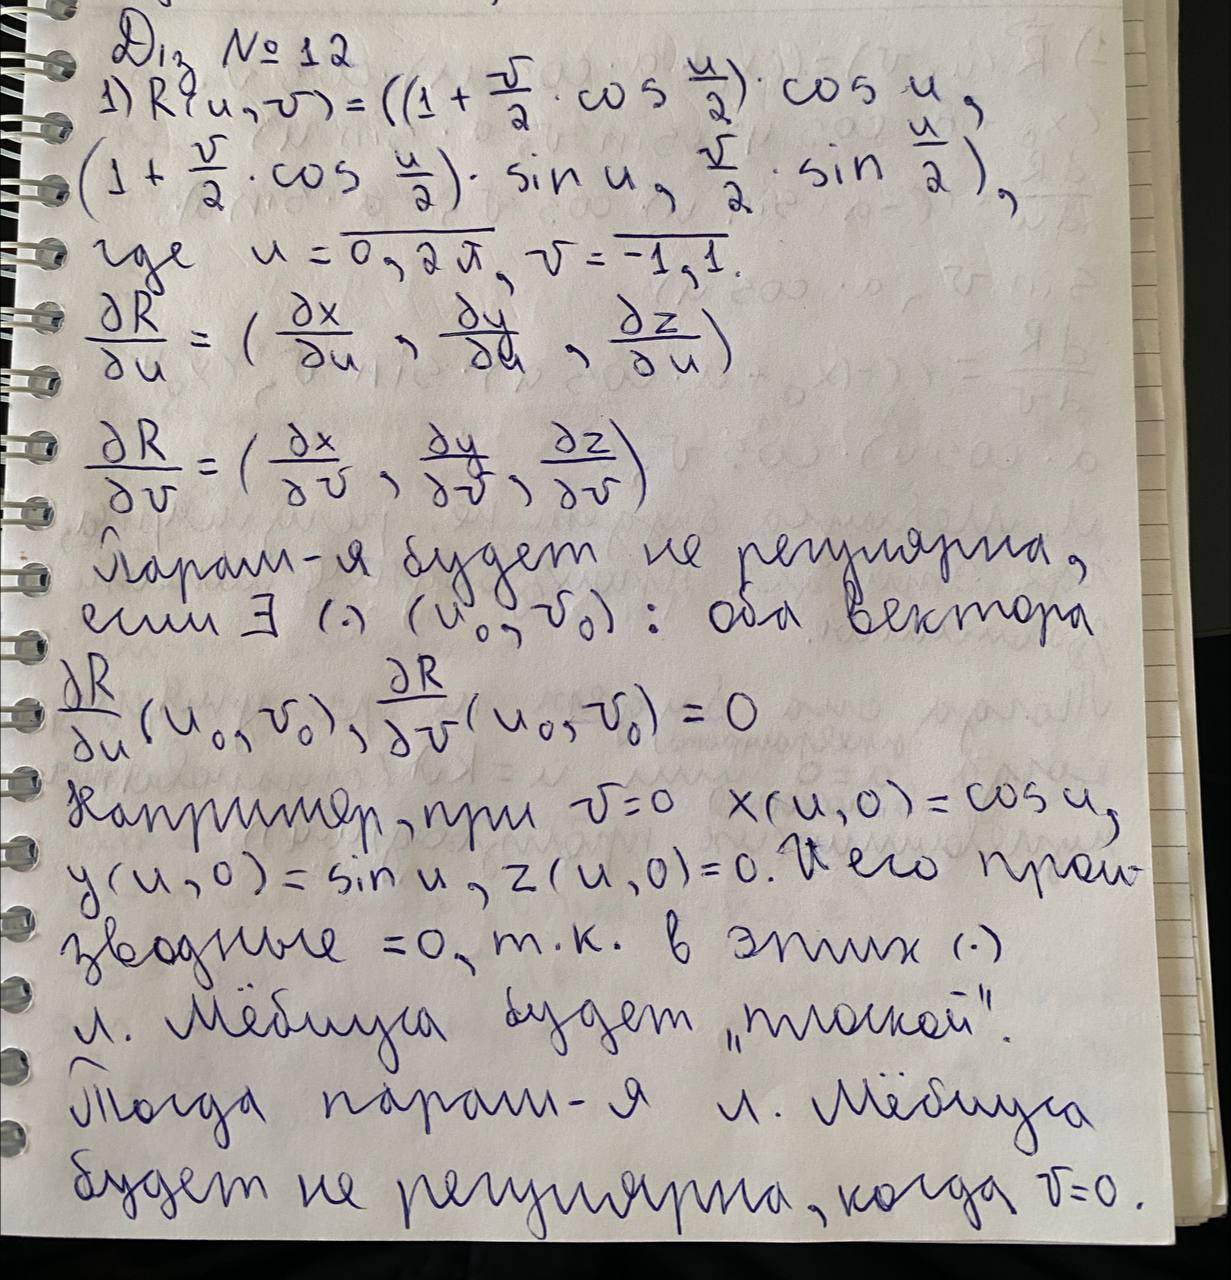 Д\з № 12
1) R(u, v) = ((1 + v/2 · cos u/2) · cos u,
(1 + v/2 · cos u/2) · sin u, v/2 · sin u/2),
где u = \overline{0, 2π}, v = \overline{-1, 1}.
∂R/∂u = (∂x/∂u, ∂y/∂u, ∂z/∂u)
∂R/∂v = (∂x/∂v, ∂y/∂v, ∂z/∂v)
Парам-я будет не регулярна,
если ∃ (·) (u₀, v₀) : оба вектора
∂R/∂u (u₀, v₀), ∂R/∂v (u₀, v₀) = 0
Например, при v=0 x(u, 0) = cos u,
y(u, 0) = sin u, z(u, 0) = 0. И его прои-
зводные =0, т.к. в этих (·)
л. Мёбиуса будет „плоской".
Тогда парам-я л. Мёбиуса
будет не регулярна, когда v=0.